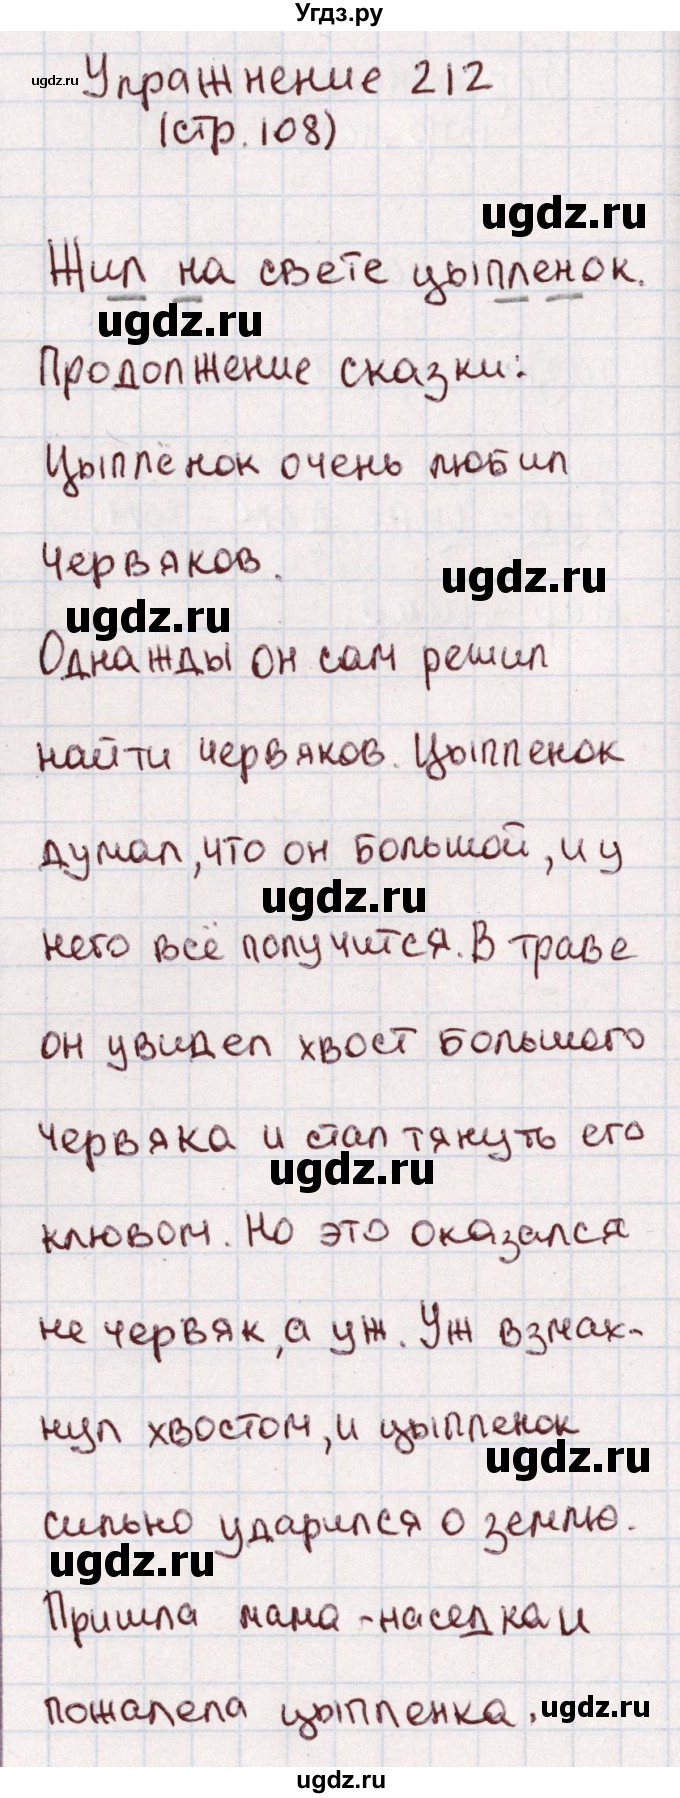 Угдз.ру
ugdz.ru
Упражнение 212
(стр. 108)
ugdz.ru
Жил на свете цыпленок.
ugdz.ru
Продолжение сказки:
Цыплёнок очень любил
червяков.
ugdz.ru
ugdz.ru
Однажды он сам решил
найти червяков. Цыпленок
думал, что он большой, и у
ugdz.ru
него всё получится. В траве
он увидел хвост большого
червяка и стал тянуть его
ugdz.ru
клювом. Но это оказался
не червяк, а уж. Уж взмах-
нул хвостом, и цыпленок
ugdz.ru
сильно ударился о землю.
ugdz.ru
Пришла мама-наседка и
пожалела цыпленка.
ugdz.ru
ugdz.ru